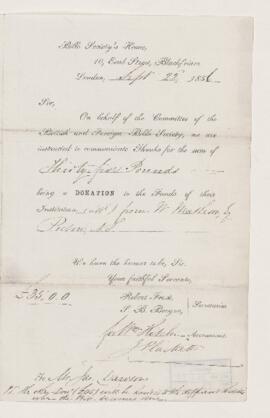 Bible Society's House,
10, Earl Street, Blackfriars
London, Sept 22 1856
Sir,
On behalf of the Committee of the
British and Foreign Bible Society, we are
instructed to communicate Thanks for the sum of
Thirty five Pounds
being a DONATION to the Funds of their
Institution, from W. Matheson Esq
Pictou, N.S.
We have the honor to be, Sir,
Your faithful Servants,
£35.0.0
Robert Frost
S. B. Bergne
Secretaries
Wm Hitchin Accountant
To Mr. Jas. Dawson